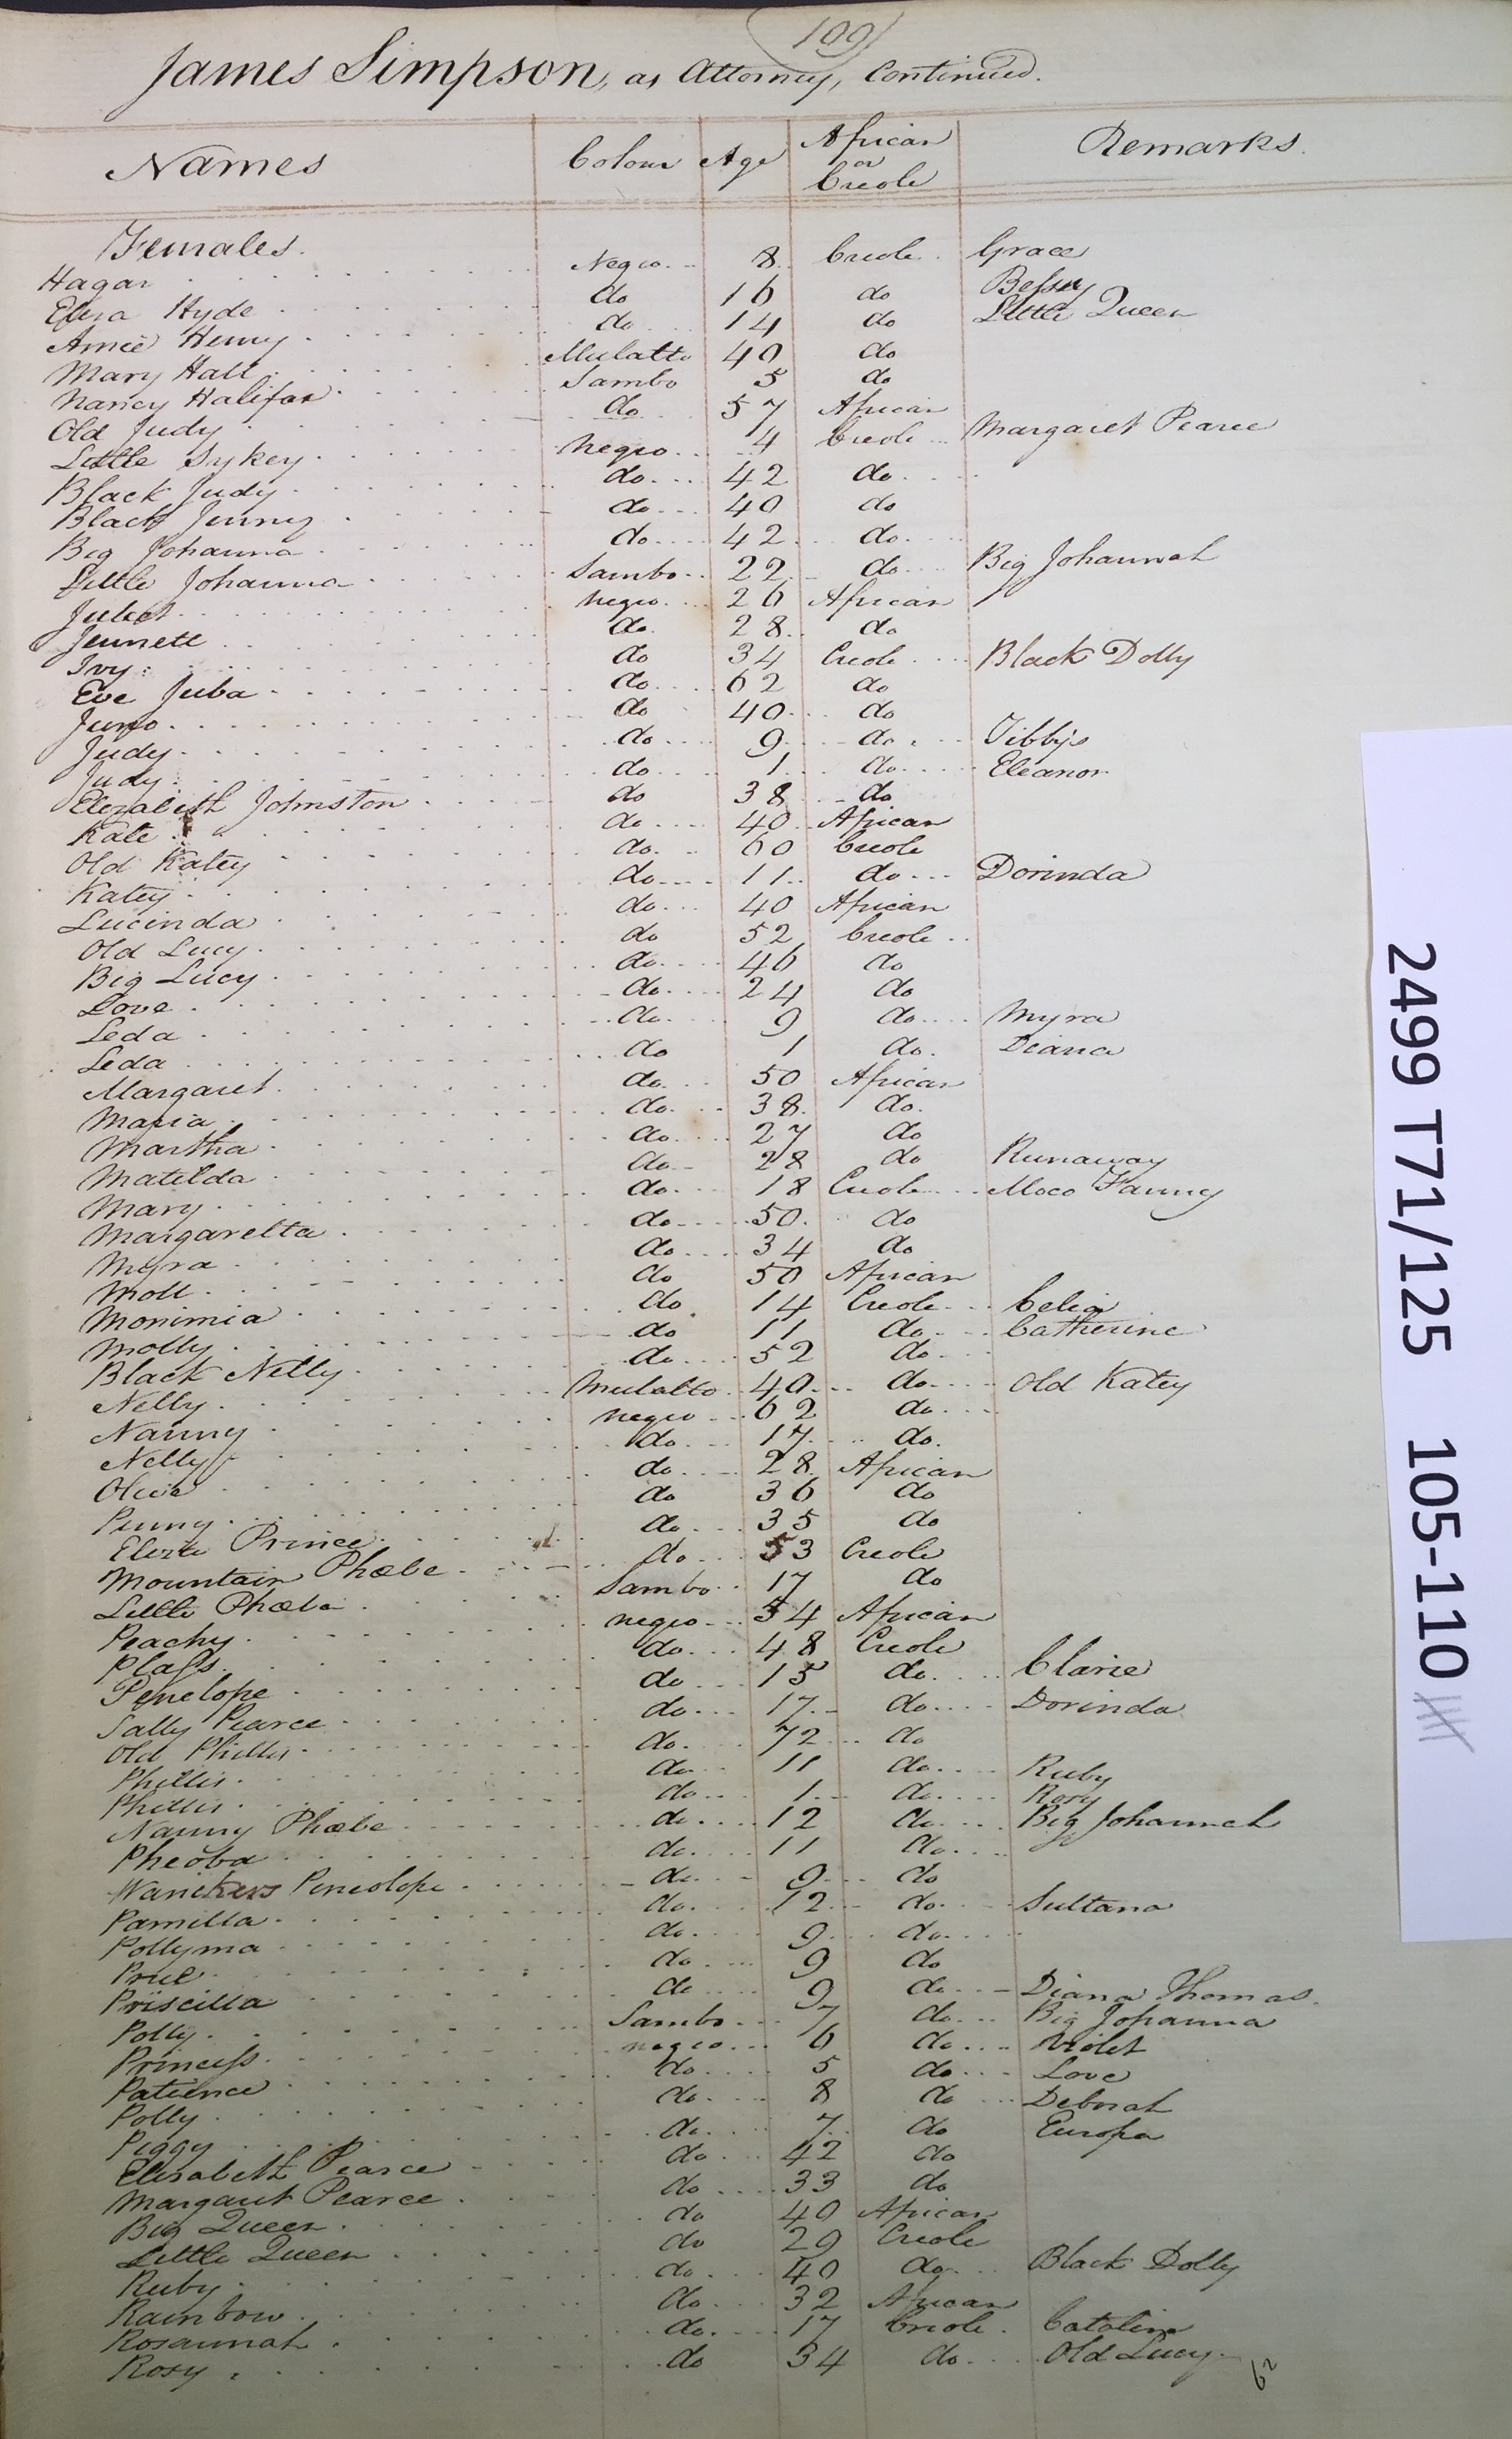 109
James Simpson, as Attorney, Continued.
Names Colour Age African or Creole Remarks.
Females.
Hagar Negro 8 Creole Grace
Eliza Hyde do 16 do Betsey
Amie Henry do 14 do Little Queen
Mary Hall Mulatto 40 do
Nancy Halifax Sambo 5 do
Old Judy do 57 African
Little Sykey Negro 4 Creole Margaret Pearce
Black Judy do 42 do
Black Jenny do 40 do
Big Johanna do 42 do
Little Johanna Sambo 22 do Big Johannah
Juliet negro 26 African
Jennett do 28 do
Ivy do 34 Creole Black Dolly
Eve Juba do 62 do
Juno do 40 do
Judy do 9 do Tibbys
Judy do 1 do Eleanor
Elizabeth Johnston do 38 do
Kate do 40 African
Old Katey do 60 Creole
Katey do 11 do Dorinda
Lucinda do 40 African
Old Lucy do 52 Creole
Big Lucy do 46 do
Love do 24 do
Leda do 9 do Myra
Leda do 1 do Diana
Margaret do 50 African
Maria do 38 do
Martha do 27 do
Matilda do 28 do Runaway
Mary do 18 Creole Moco Fanny
Margaretta do 50 do
Myra do 34 do
Moll do 50 African
Monimia do 14 Creole Celia
Molly do 11 do Catherine
Black Nelly do 52 do
Nelly Mulatto 40 do Old Katey
Nanny negro 62 do
Nelly do 17 do
Olive do 28 African
Penny do 36 do
Eliza Prince do 35 do
Mountain Phœbe do 53 Creole
Little Phœbe Sambo 17 do
Peachy negro 34 African
Plass do 48 Creole
Penelope do 15 do Clarie
Sally Pearce do 17 do Dorinda
Old Phillis do 72 do
Phillis do 11 do Ruby
Phillis do 1 do Rosy
Nanny Phœbe do 12 do Big Johannah
Pheoba do 11 do
Warickers Peneolope do 9 do
Pamilla do 12 do Sultana
Pollyma do 9 do
Prue do 9 do
Priscilla do 9 do Diana Thomas.
Polly Sambo 7 do Big Johanna
Princess negro 6 do Violet
Patience do 5 do Love
Polly do 8 do Deborah
Piggy do 7 do Europa
Elizabeth Pearce do 42 do
Margaret Pearce do 33 do
Big Queen do 40 African
Little Queen do 29 Creole
Ruby do 40 do Black Dolly
Rainbow do 32 African
Rosannah do 17 Creole Catalina
Rosy do 34 do Old Lucy
62
2499 T71/125 105-110